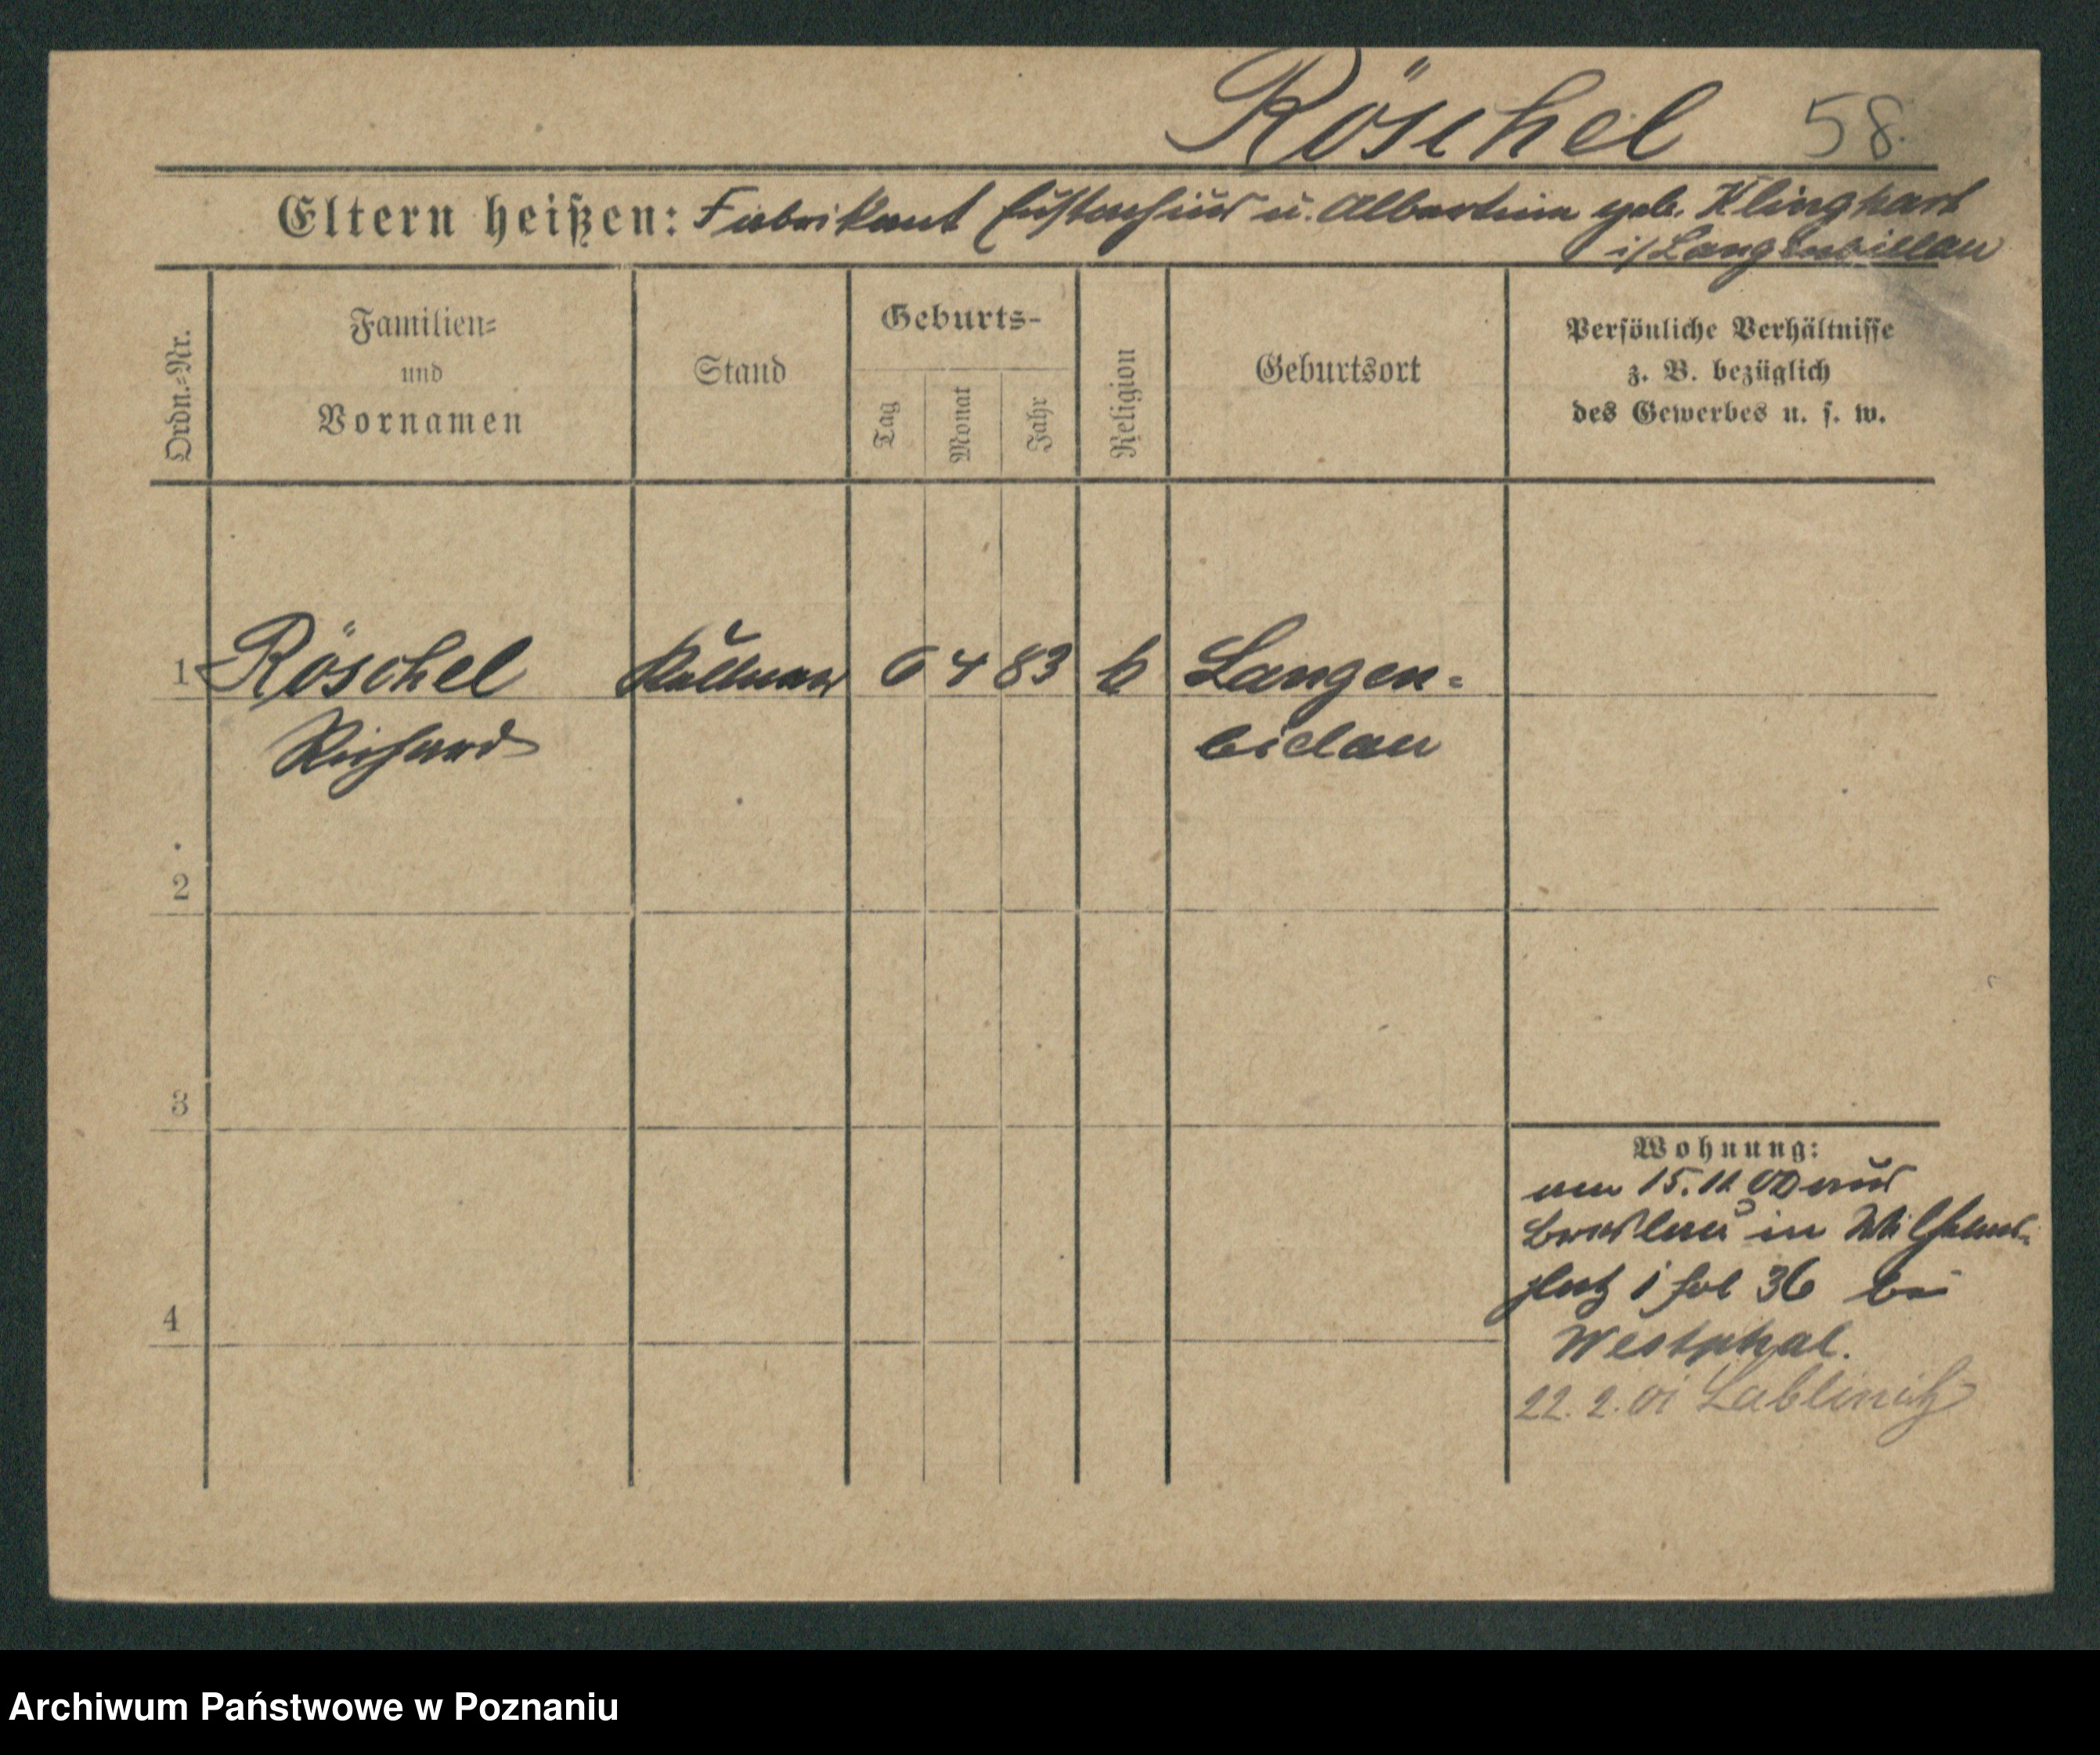 Röschel 58.
Eltern heißen: Fabrikant Eustachius u. Albertine geb. Klinghart
i/ Langenbielau
Ordn.-Nr.
Familien-
und
Vornamen
Stand
Geburts-
Tag
Monat
Jahr
Religion
Geburtsort
Persönliche Verhältnisse
z. B. bezüglich
des Gewerbes u. s. w.
1 Röschel Kellner 6 4 83 k Langen-
Richard bielau
2
3
4
Wohnung:
am 15. 11 00 aus
Breslau in Wilhelms-
platz 1 fol 36 bei
Westphal.
22. 2. 01 Lublinitz
Archiwum Państwowe w Poznaniu